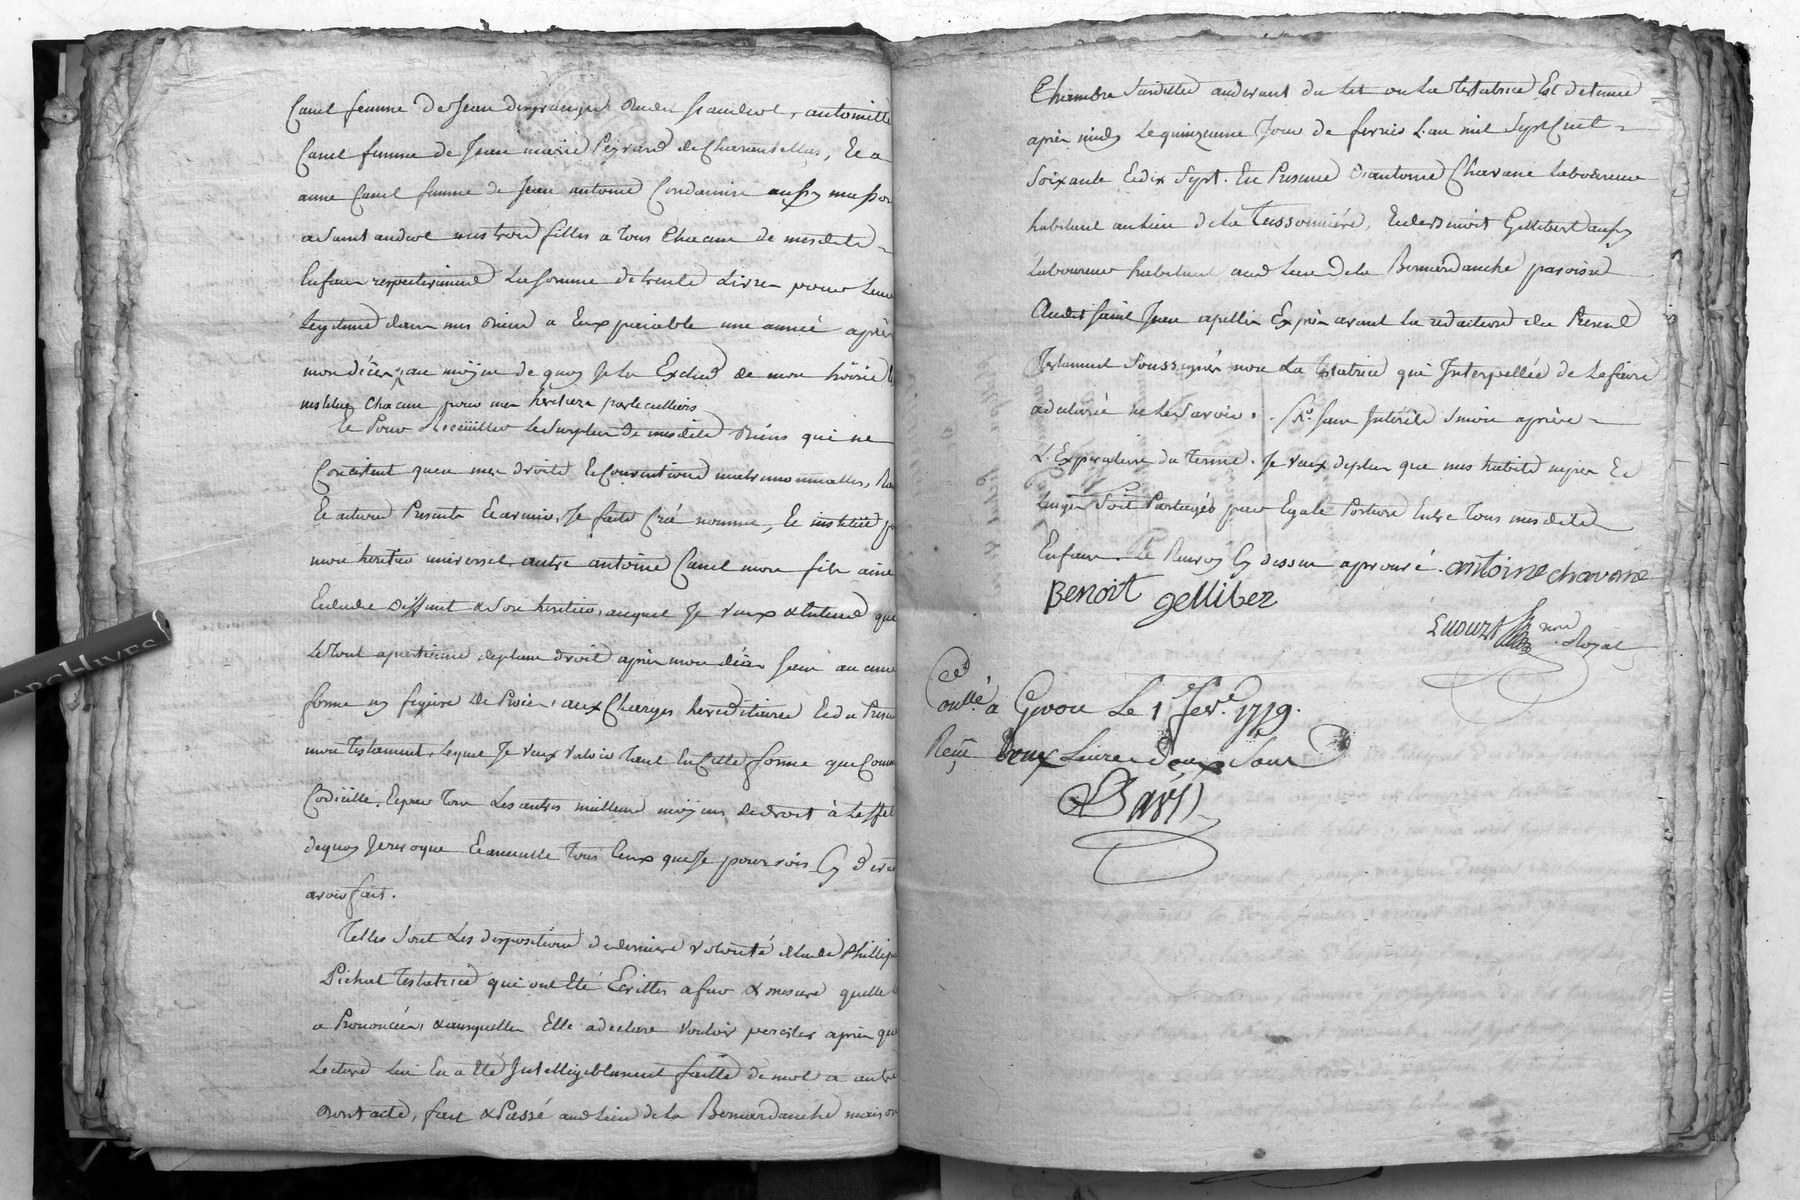 Canel femme de Jean dugranger dudit st andeol, antoinette
Canel femme de Jean marie Peyrard de Charentellus, Et a
anne Canel femme de Jean antoine Condamin aussy masson
a Saint andeol mes trois filles a Tous Chacun de mesdits
Enfans respectivement la somme de trente Livres pour Leur
Legitime dans mes Biens a Eux paiable une année après
mon décès, au moÿen de quoy Je les Exclud de mon hoirie Les
institue chacun pour mes heritiers particulliers
Et Pour Recuëiller le Surplus de mesdits Biens qui ne
Consistent qu'en mes droits Et Conventions matrimonialles,
Et actions Presents Et avenir, Je fais Créé nomme, Et institüe pour
mon heritier universel autre antoine Canel mon fils ainé
auquel Je veux & Entend que
Le tout apartienne de plein droit après mon décès sans aucune
forme ny figure de Procès, aux Charges hereditaires Et du Présent
mon Testament, lequel Je veux valoir Tant En Cette forme que Comme
Codicille, Et par Tous Les autres meilleurs moÿens de droit à Leffet
dequoy Je revoque Et annulle Tous Ceux que Je pourrois Cy devant
avoir fait.
Telles sont Les dispositions de derniere volonté de lade Phillipe
Pichat Testatrice qui ont Eté Ecrittes a fur & mesure quelle les
a Prononcées, & ausquelles Elle a declaré vouloir persister après que
Lecture lui En a Eté Intelligiblement faitte de mot a autre
dont acte, fait & Passé aud Lieu de la Bernardanche maison
Chambre Susditte audevant du Lit ou la Testatrice Est detenue
après midy Le quinzieme Jour de fevrier L'an mil Sept Cent
Soixante Et dix Sept. En Presence d'antoine Chavane laboureur
habitant au lieu de la Tussonniére, Et de Benoit Gellibert aussy
Laboureur habitant aud Lieu de la Bernardanche paroisse
Dudit Saint Jean apellés Exprès avant la redaction du Present
Testament Soussignés non La Testatrice qui Interpellée de Le faire
a declaré ne Le Savoir. sans Intérêts Sinon après
L'Expiration du terme. Je veux de plus que mes habits nipes Et
Linges Soit Partagés par Egale Portion Entre Tous mesdits
Enfans. Le Renvoy Cy dessus aprouvé. antoine chavane
Benoit gelliber
Royal
Conllé a Givors Le 1 fevr. 1779.
Reçu Deux Livres Deux Sous